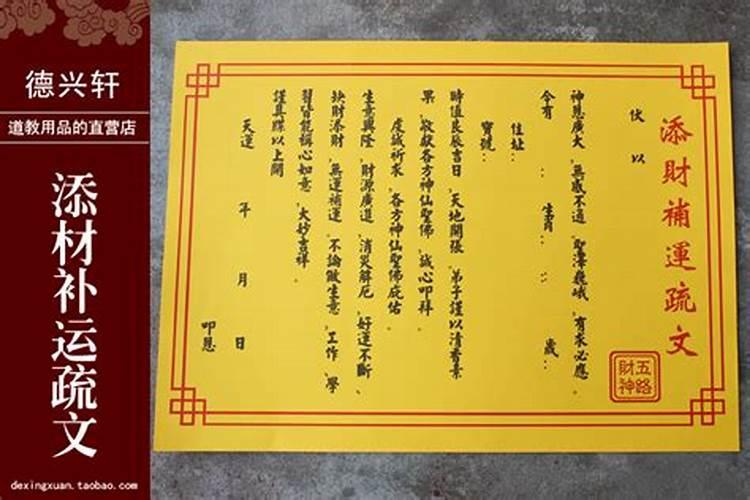 德兴轩
道教用品的直营店
添材补运疏文
dexingxuan.taobao.com
添財補運疏文
五路
財神
伏以
神恩廣大、無感不通、聖澤巍峨、有求必應。
今有：生肖：：歲：
住址：
寶號：
時值良辰吉日、天地開張、弟子謹以清香素
果、敬献各方神仙聖佛、誠心叩拜。
虔誠祈求、各方神仙聖佛庇佑。
生意興隆、財源廣進、消災解厄、好運不斷、
缺財添財、無運補運、不論做生意、工作、學
習皆能稱心如意、大妙吉祥。
謹具牒以上聞
天運 年 月 日
叩恩